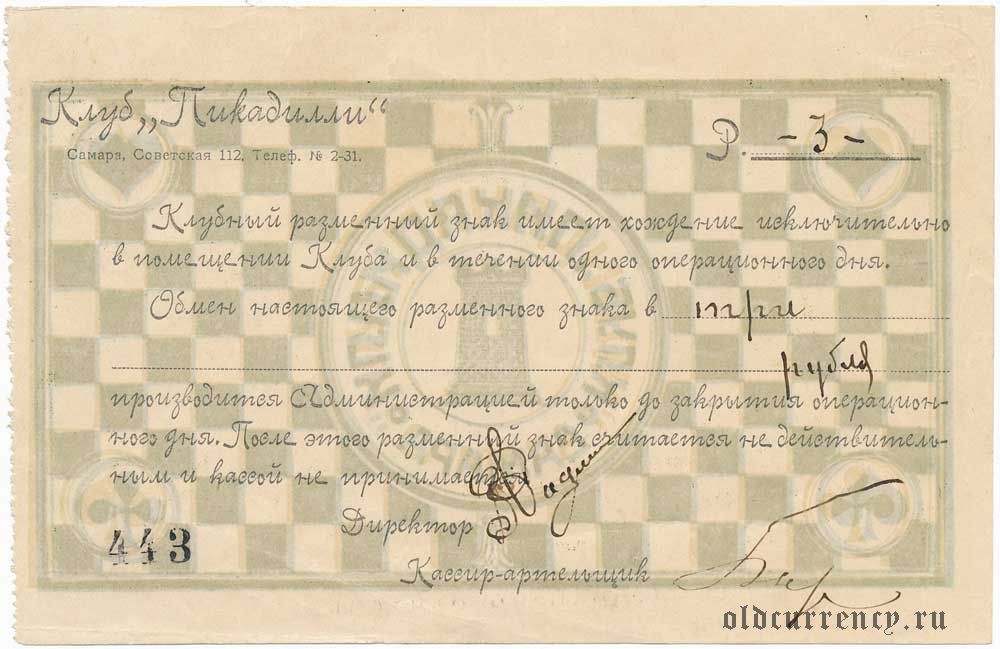 Клуб „Пикадилли“
Самара, Советская 112, Телеф. № 2-31.
Р. -3-
Клубный разменный знак имеет хождение исключительно
в помещении Клуба и в течении одного операционного дня.
Обмен настоящего разменного знака в три
рубля
производится Администрацией только до закрытия операцион-
ного дня. После этого разменный знак считается не действитель-
ным и кассой не принимается.
Директор
443
Кассир-артельщик
oldcurrency.ru